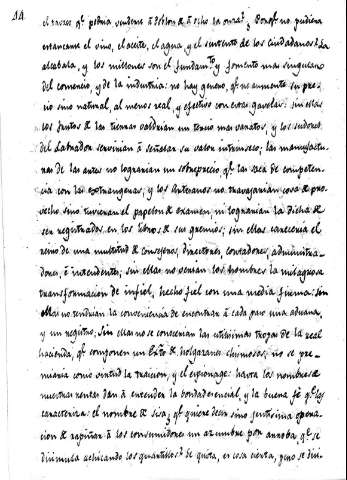 44.
el travès q.e podria venderse à doblon & à ocho la onza; y Porq.e no pudiera
estancarse el vino, el aceite, el agua, y el sustento de los ciudadanos? La
alcabala, y los millones son el fundam.to y fomento mas singular
del comercio, y de la industria: no hay genero, q.e no aumente su pre-
cio sino natural, al menos real, y efectivo con estas gavelas: sin ellas
los frutos & las tierras valdrian un tercio mas varatos, y los sudores
del Labrador servirian à señalar su valor intrinseco; las manufactu-
ras de las artes no lograrian un sobreprecio, q.e las saca de competen-
cia con las extrangeras; y los Artesanos no travajarian cosa & pro-
vecho sino tuvieran el papelon & examen, ni lograrian la dicha &
ser registrados en los libros & sus gremios; sin ellas careceria el
reino de una multitud & consejeros, directores, contadores, administra-
dores, è intendentes; sin ellas no verian los hombres la milagrosa
transformacion de infiel, hecho fiel con una media firma: sin
ellas no tendrian la conveniencia de encontrar à cada paso una aduana,
y un registro; sin ellas no se conocerian las utilisimas tropas de la real
hacienda, q.e componen un Ex.to & holgazanes
no se pre-
miaria como virtud la traicion, y el espionage: hasta los nombres &
nuestras rentas dan à entender la bondad esencial, y la buena fè q.e las
caracteriza: el nombre & sisa, q.e quiere decir sino
opera-
cion & rapiñar à los consumidores un azumbre por arroba, q.e se
disimula achicando los quartillos? se quita, es cosa cierta, pero se disi-